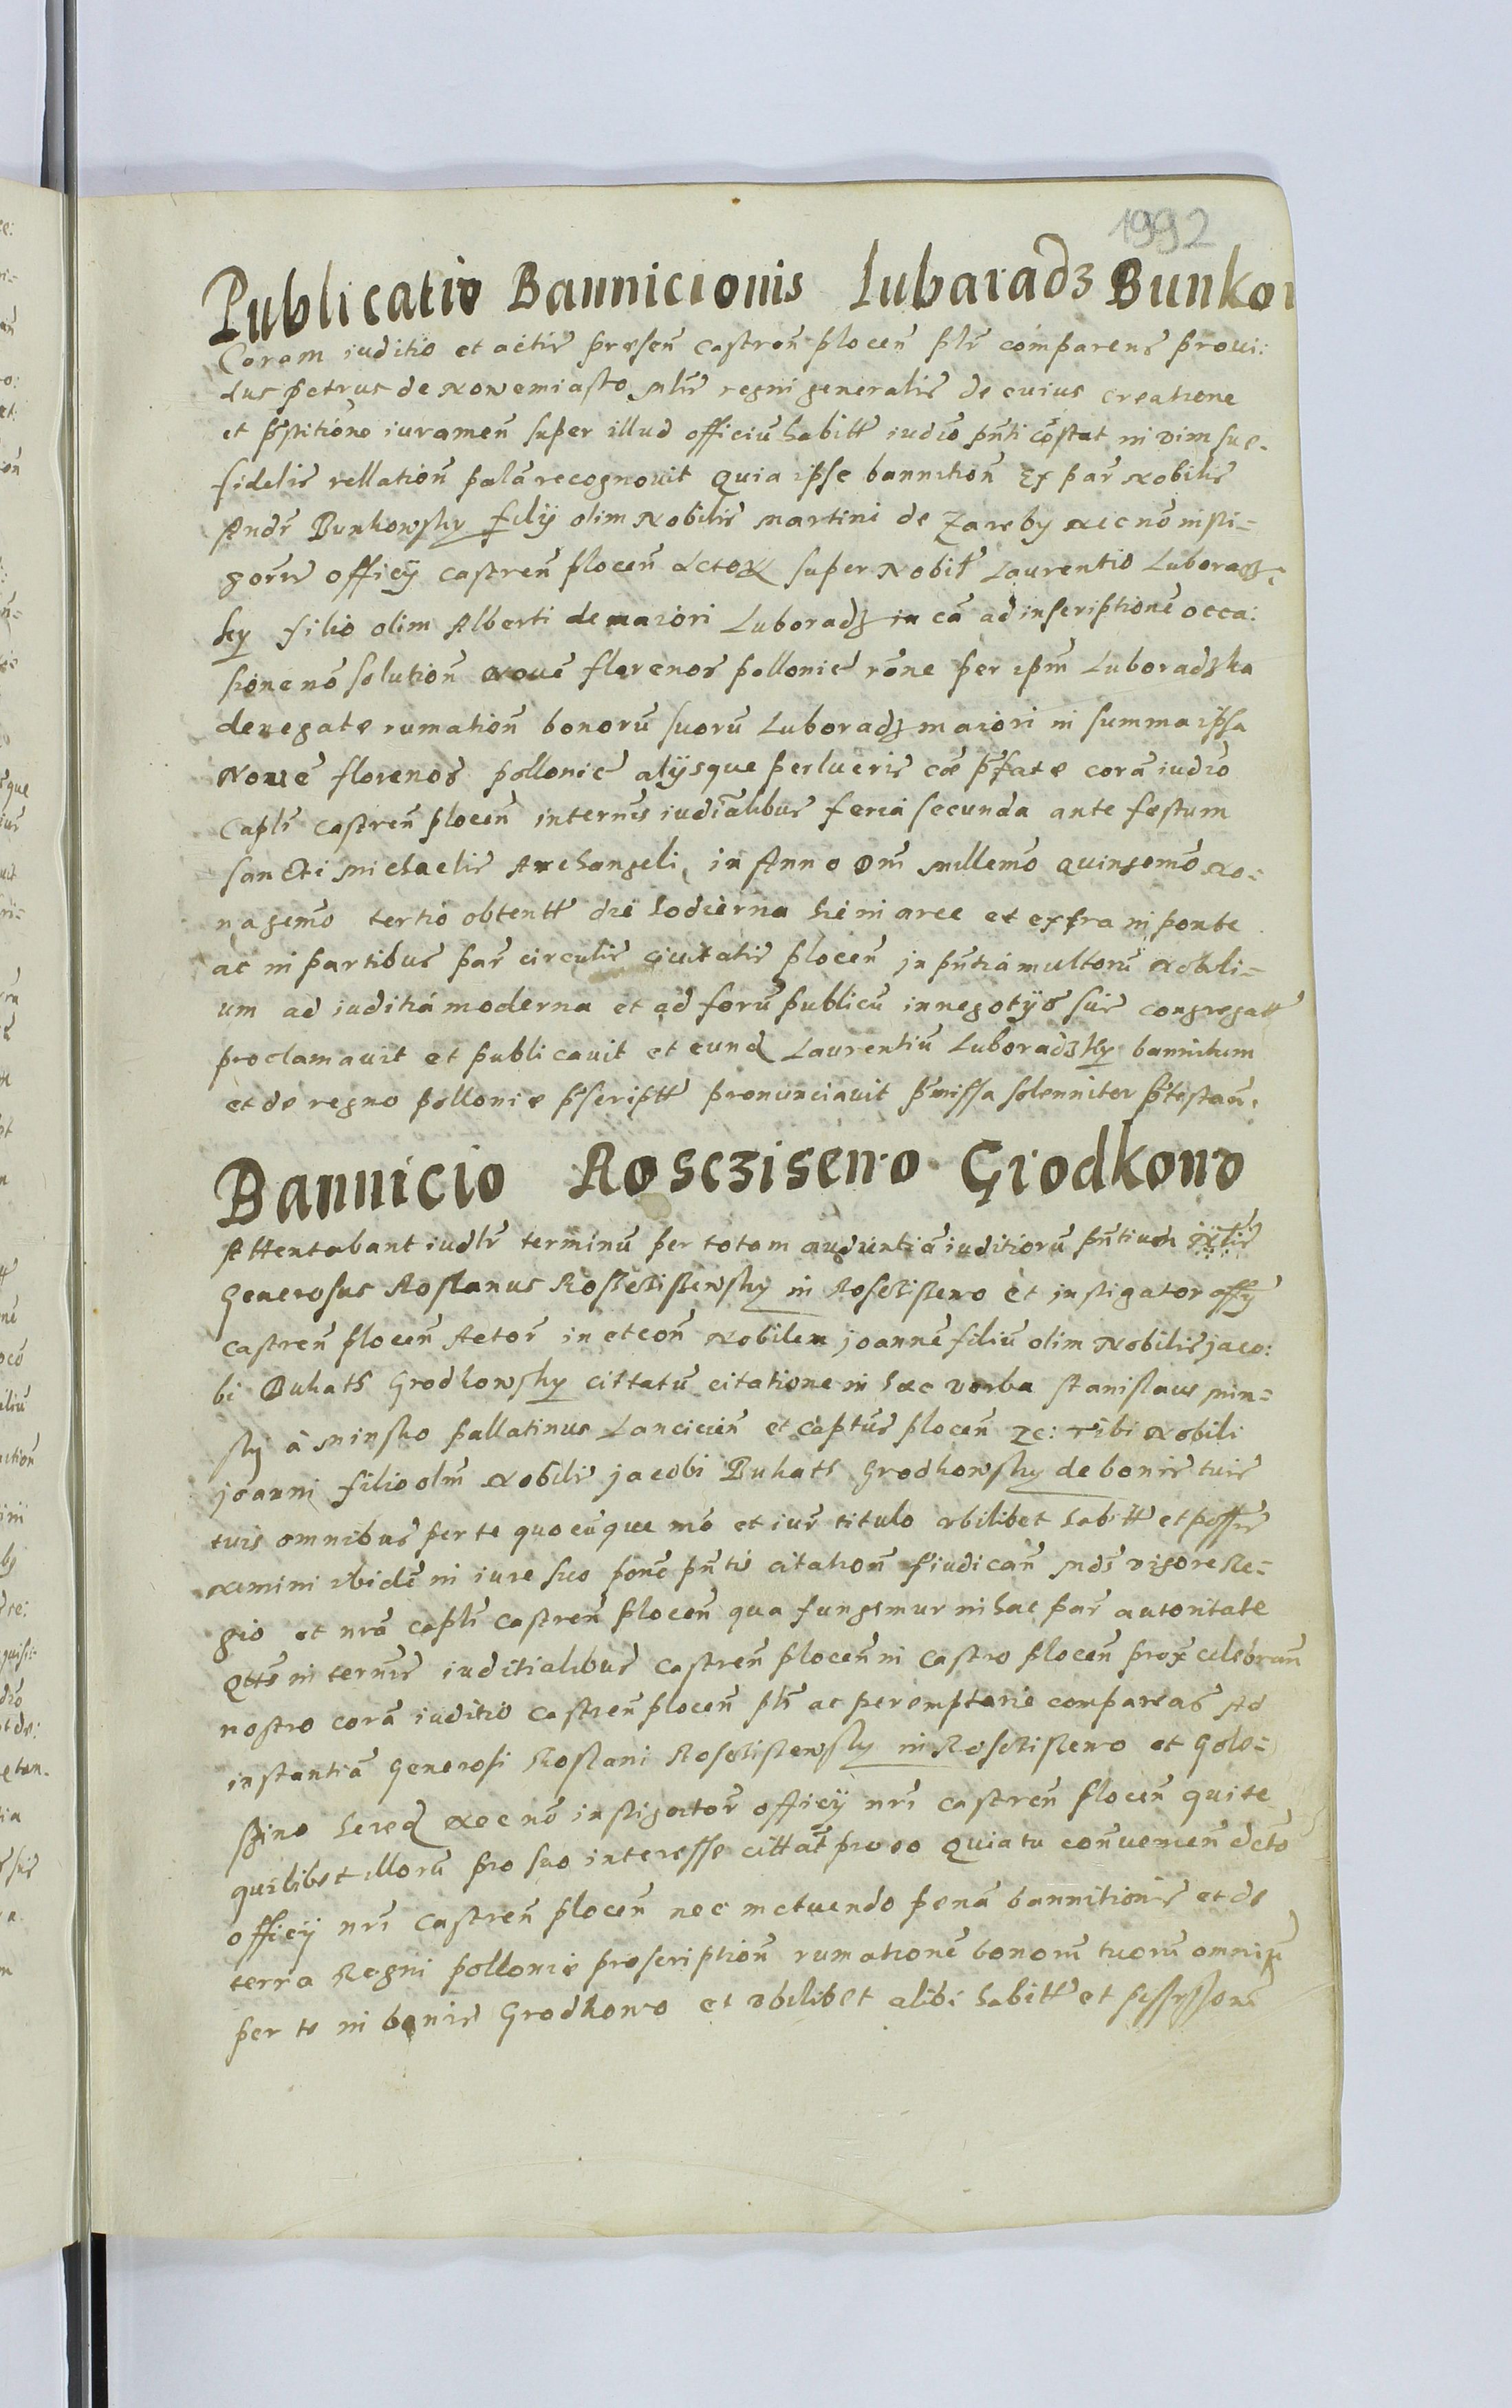 1992
Publicatio Bannicionis Lubaradz Bunkow
Coram iuditio et actis præsen castren plocen plr comparens provi:
dus petrus de Nowemiasto mlis regni generalis de cuius creatione
et pstitiono iuramen super illud officiu habitt iudio pnti costat in vim sue
fidelis rellation pala recognovit Quia ipse bannition Ex par Nobilis
Andr Bunkowsky filij olim Nobilis Martini de Zareby necno insti=
goris officij castren plocen Actor super Nobil Laurentio Luboradz=
ky filio olim Alberti de maiori Luboradz in ca ad inscriptione occa:
sione no solution Noue florenos pollonic rone per ipm Luboradzka
denegate rumation bonoru suoru Luboradz maiori in summa ipsa
Noue florenos pollonic alijsque perlucris coe pfate cora iudio
Capli castren plocen in termis iudialibus feria secunda ante festum
sancti Michaelis Archangeli, in Anno Dni millemo quingemo No=
nagemo tertio obtentt die hodierna hic in arce et extra in ponte
ac in partibus par circulis civitatis plocen in pntia multoru Nobili=
um ad iuditia moderna et ad foru publicu in negotijs suis congregatt
proclamavit et publicavit et eund Laurentiu Luboradzky bannitum
et de regno pollonie pscriptt pronunciavit pmissa solenniter ptestan.
Bannicio Rosczisewo Grodkowo
Attentabant iudlr terminu per totam audientia iuditioru pntium
Generosus Roslanus Roscziszewsky in Roscziszewo et instigator offy
castren plocen Actor in et con Nobilem joanne filiu olim Nobilis jaco:
bi Buhats Grodkowsky cittatu citatione in hæc verba Stanislaus min=
sky à Minsko pallatinus Lancicien et Captus plocen zc: Tibi Nobili
joanni filio olm Nobilis jacobi Buhats Grodkowsky de bonis tuis
tuis omnibus per te quocuque mo et iur titulo vbilibet habitt et posss
nemini ibide in iure suo pone pnti citation piudican mds vigore Re=
gio et nra capli castren plocen qua fungimur in hac par autoritate
Qtts in termis iuditialibus castren plocen in castro plocen prox celebran
nostro cora iuditio castren plocen plr ac peremptorie compareas Ad
instantia Generosi Roslani Roscziszewsky in Roscziszewo et Gole=
szino hered necno instigator officij nri castren plocen qui te
quilibet illoru pro suo interesse cittat pro eo Quia tu convemen dcto
officij nri castren plocen nec metuendo pena bannitionis et de
terra Regni pollonie proscription rumatione bonoru tuoru omniu
per te in bonis Grodkowo et vbilibet alibi habitt et possession